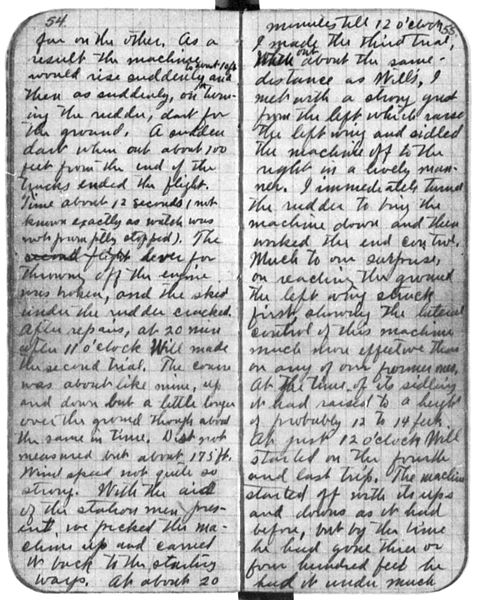 54
far on the other. As a
result the machine
would rise suddenly to about 10 ft.
and then as suddenly, on turn-
ing the rudder, dart for
the ground. A sudden
dart when out about 100
feet from the end of the
tracks ended the flight.
Time about 12 seconds (not
known exactly as watch was
not promptly stopped). The
second flight lever for
throwing off the engine
was broken, and the skid
under the rudder cracked.
After repairs, at 20 min
after 11 o'clock Will made
the second trial. The course
was about like mine, up
and down but a little longer
over the ground though about
the same in time. Dist not
measured but about 175 ft.
Wind speed not quite so
strong. With the aid
of the station men pres-
ent, we picked the ma-
chine up and carried
it back to the starting
ways. At about 20
55
minutes till 12 o'clock
I made the third trial.
When out about the same
distance as Will's, I
met with a strong gust
from the left which raised
the left wing and sidled
the machine off to the
right in a lively man-
ner. I immediately turned
the rudder to bring the
machine down and then
worked the end control.
Much to our surprise,
on reaching the ground
the left wing struck
first, showing the lateral
control of this machine
much more effective than
on any of our former ones.
At the time of its sidling
it had raised to a height
of probably 12 to 14 feet.
At just 12 o'clock Will
started on the fourth
and last trip. The machine
started off with its ups
and downs as it had
before, but by the time
he had gone three or
four hundred feet he
had it under much